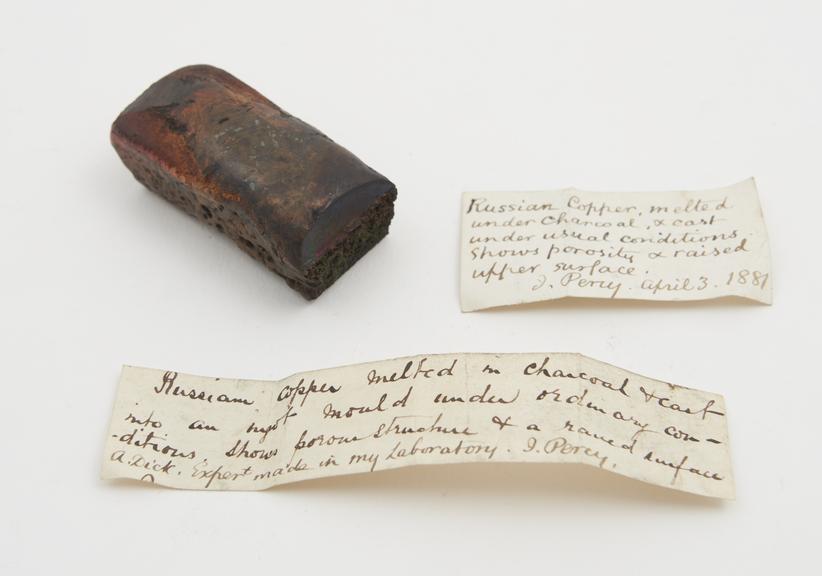 Russian Copper, melted
under charcoal, & cast
under usual conditions
shows porosity & raised
upper surface.
J. Percy. April 3. 1881
Russian copper melted in charcoal & cast
into an ingot mould under ordinary con-
-ditions, shows porous structure & a raised surface
A. Dick. Expert made in my Laboratory. J. Percy.